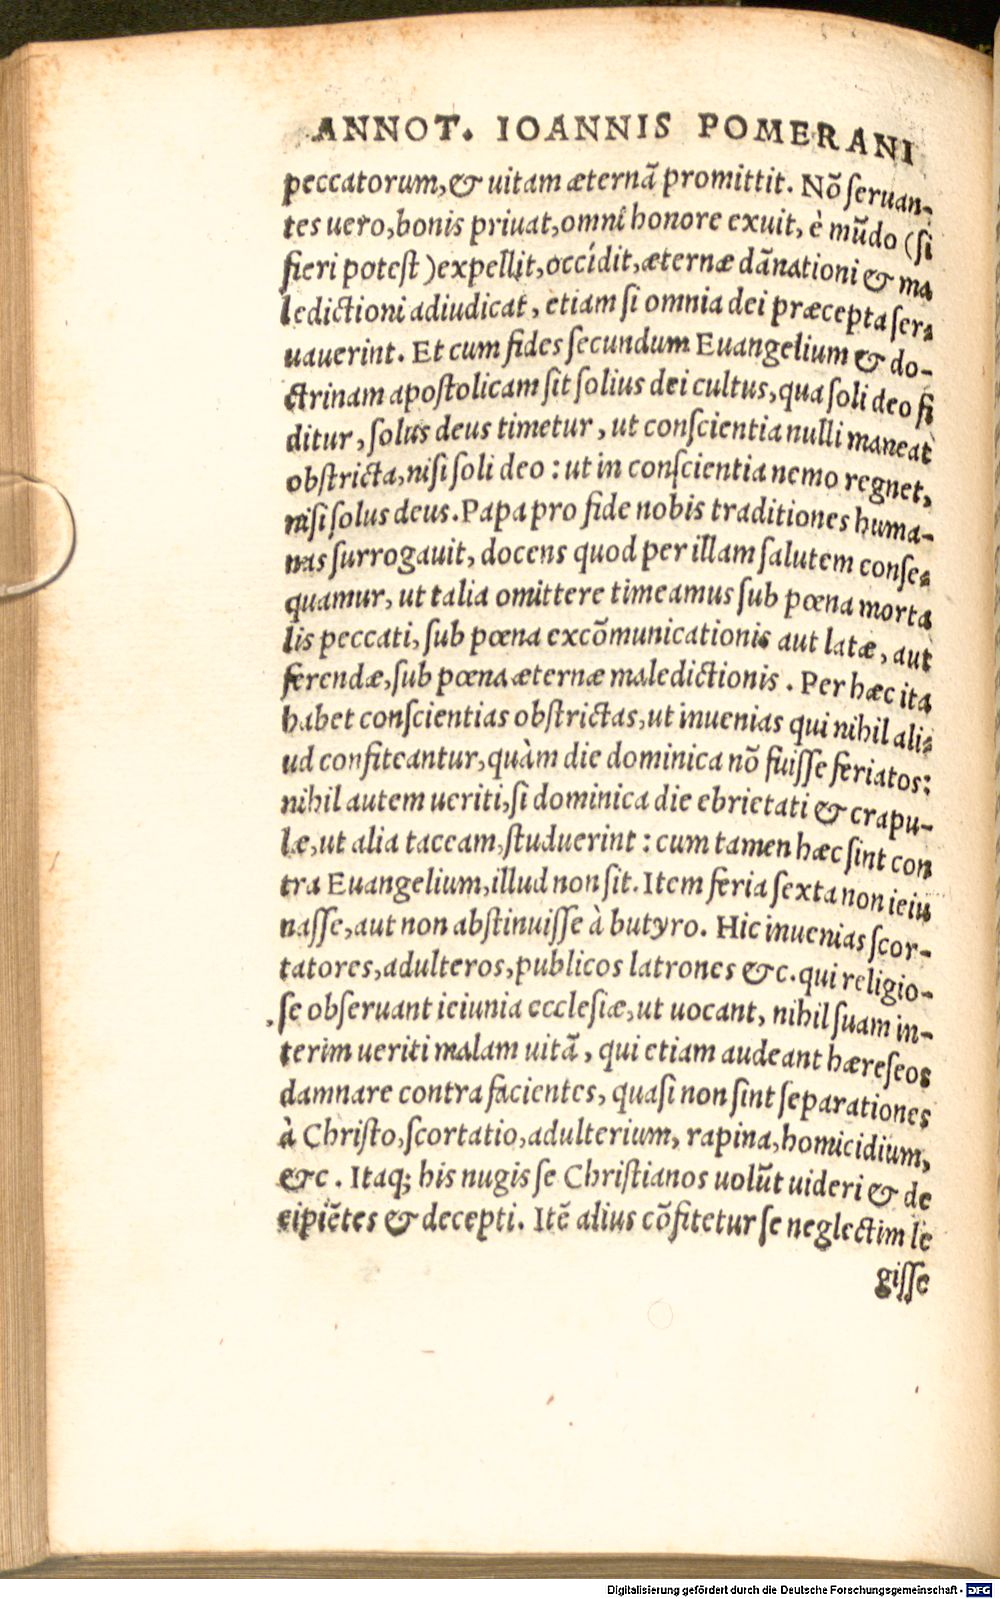 ANNOT. IOANNIS POMERANI
peccatorum, & uitam æternã promittit. Nõ seruan-
tes uero, bonis priuat, omni honore exuit, è mũdo (si
fieri potest) expellit, occidit, æternæ dãnationi & ma
ledictioni adiudicat, etiam si omnia dei præcepta ser-
uauerint. Et cum fides secundum Euangelium & do-
ctrinam apostolicam sit solius dei cultus, qua soli deo fi
ditur, solus deus timetur, ut conscientia nulli maneat
obstricta, nisi soli deo: ut in conscientia nemo regnet,
nisi solus deus. Papa pro fide nobis traditiones huma-
nas surrogauit, docens quod per illam salutem conse-
quamur, ut talia omittere timeamus sub pœna morta
lis peccati, sub pœna excõmunicationis aut latæ, aut
ferendæ, sub pœna æternæ maledictionis. Per hæc ita
habet conscientias obstrictas, ut inuenias qui nihil ali-
ud confiteantur, quàm die dominica nõ fuisse feriatos:
nihil autem ueriti, si dominica die ebrietati & crapu-
læ, ut alia taceam, studuerint: cum tamen hæc sint con
tra Euangelium, illud non sit. Item feria sexta non ieiu
nasse, aut non abstinuisse à butyro. Hic inuenias scor-
tatores, adulteros, publicos latrones &c. qui religio-
se obseruant ieiunia ecclesiæ, ut uocant, nihil suam in-
terim ueriti malam uitã, qui etiam audeant hæreseos
damnare contra facientes, quasi non sint separationes
à Christo, scortatio, adulterium, rapina, homicidium,
&c. Itaq; his nugis se Christianos uolũt uideri & de
cipiẽtes & decepti. Itẽ alius cõfitetur se neglectim le
gisse
Digitalisierung gefördert durch die Deutsche Forschungsgemeinschaft - DFG